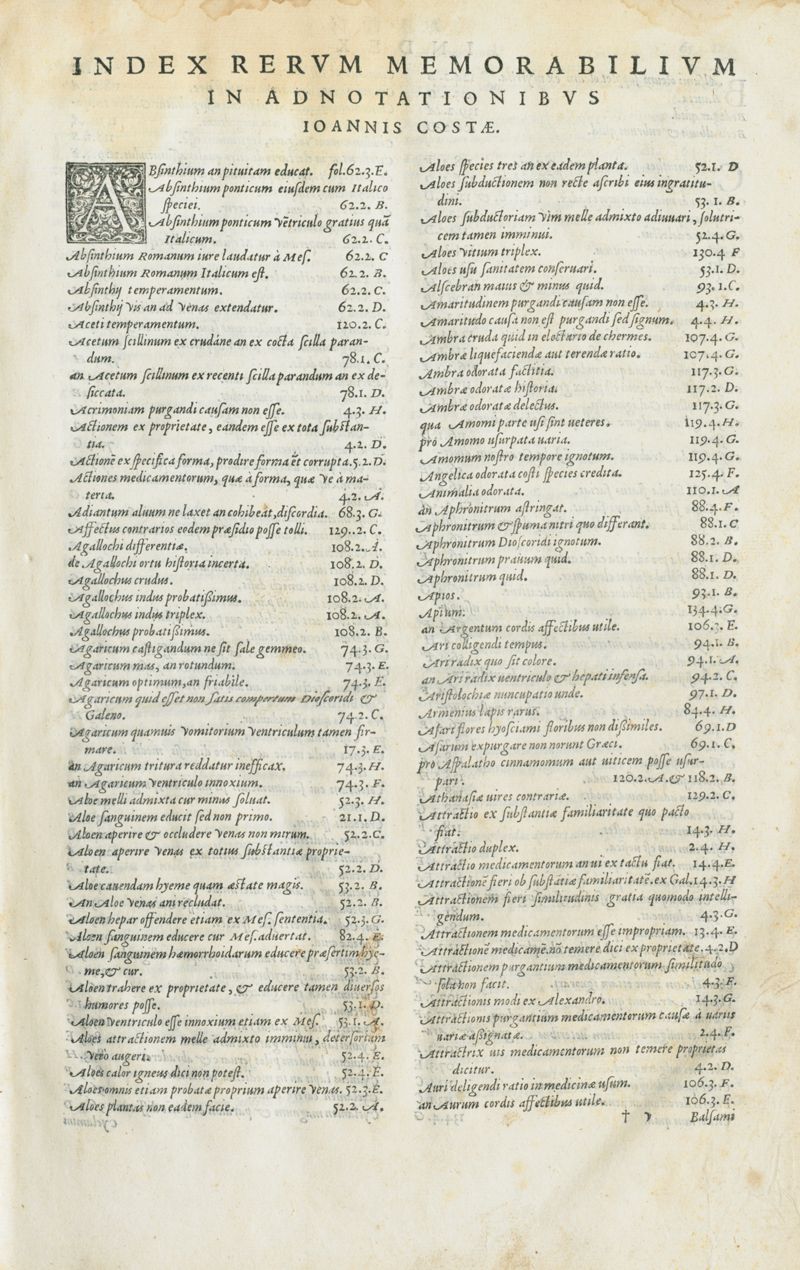 INDEX RERVM MEMORABILIVM
IN ADNOTATIONIBVS
IOANNIS COSTÆ.
ABſinthium an pituitam educat. fol.62.3.E.
Abſinthium ponticum eiuſdem cum Italico
ſpeciei. 62.2. B.
Abſinthium ponticum vẽtriculo gratius quã
Italicum. 62.2. C.
Abſinthium Romanum iure laudatur à Meſ. 62.2. C
Abſinthium Romanum Italicum eſt. 62.2. B.
Abſinthij temperamentum. 62.2. C.
Abſinthij vis an ad venas extendatur. 62.2. D.
Aceti temperamentum. 120.2. C.
Acetum ſcillinum ex crudáne an ex cocta ſcilla paran-
dum. 78.1. C.
an Acetum ſcillinum ex recenti ſcilla parandum an ex de-
ſiccata. 78.1. D.
Acrimoniam purgandi cauſam non eſſe. 4.3. H.
Actionem ex proprietate, eandem eſſe ex tota ſubſtan-
tia. 4.2. D.
Actionē ex ſpecifica forma, prodire forma et corrupta.5.2.D.
Actiones medicamentorum, quæ à forma, quæ ve à ma-
teria. 4.2. A.
Adiantum aluum ne laxet an cohibeat, diſcordia. 68.3. G.
Affectus contrarios eodem præſidio poſſe tolli. 129..2. C.
Agallochi differentiæ. 108.2. A.
de Agallochi ortu hiſtoria incerta. 108.2. D.
Agallochus crudus. 108.2. D.
Agallochus indus probatißimus. 108.2. A.
Agallochus indus triplex. 108.2. A.
Agallochus probatißimus. 108.2. B.
Agaricum caſtigandum ne ſit ſale gemmeo. 74.3. G.
Agaricum mas, an rotundum. 74.3. E.
Agaricum optimum, an friabile. 74.3. E.
Agaricum quid eſſet non ſatis compertum Dioſcoridi &
Galeno. 74.2. C.
Agaricum quamuis vomitorium ventriculum tamen fir-
mare. 17.3. E.
an Agaricum tritura reddatur inefficax. 74.3. H.
an Agaricum ventriculo innoxium. 74.3. F.
Aloe melli admixta cur minus ſoluat. 52.3. H.
Aloe ſanguinem educit ſed non primo. 21.1. D.
Aloen aperire & occludere venas non mirum. 52.2.C.
Aloen aperire venas ex totius ſubſtantiæ proprie-
tate. 52.2. D.
Aloe cauendam hyeme quam æſtate magis. 53.2. B.
An Aloe venas an recludat. 52.2. B.
Aloen hepar offendere etiam ex Meſ. ſententia. 52.3. G.
Aloen ſanguinem educere cur Meſ. aduertat. 82.4. E.
Aloen ſanguinem hæmorrhoidarum educere præſertim hye-
me, & cur. 53.2. B.
Aloen trahere ex proprietate, & educere tamen diuerſos
humores poſſe. 53.1. D.
Aloen ventriculo eſſe innoxium etiam ex Meſ. 53.1. A.
Aloës attractionem melle admixto imminui, deterſoriam
vero augeri. 52.4. E.
Aloës calor igneus dici non poteſt. 52.4. E.
Aloes omnis etiam probatæ proprium aperire venas. 52.3.E.
Aloës plantas non eadem facie. 52.2. A.
Aloes ſpecies tres an ex eadem planta. 52.1. D
Aloes ſubductionem non recte aſcribi eius ingratitu-
dini. 53. 1. B.
Aloes ſubductoriam vim melle admixto adiuuari, ſolutri-
cem tamen imminui. 52.4. G.
Aloes vitium triplex. 130.4 F
Aloes uſu ſanitatem conſeruari. 53.1. D.
Alſcebran maius & minus quid. 93. 1.C.
Amaritudinem purgandi cauſam non eſſe. 4.3. H.
Amaritudo cauſa non eſt purgandi ſed ſignum. 4.4. H.
Ambra cruda quid in electario de chermes. 107.4. G.
Ambræ liquefaciendæ aut terendæ ratio. 107.4. G.
Ambra odorata factitia. 117.3. G.
Ambræ odoratæ hiſtoria. 117.2. D.
Ambræ odoratæ delectus. 117.3. G.
qua Amomi parte uſi ſint ueteres. 119.4. H.
pro Amomo uſurpata uaria. 119.4. G.
Amomum noſtro tempore ignotum. 119.4. G.
Angelica odorata coſti ſpecies credita. 125.4. F.
Animalia odorata. 110.1. A
an Aphronitrum aſtringat. 88.4. F.
Aphronitrum & ſpuma nitri quo differant. 88.1. C
Aphronitrum Dioſcoridi ignotum. 88.2. B.
Aphronitrum prauum quid. 88.1. D.
Aphronitrum quid. 88.1. D.
Apios. 93.1. B.
Apium. 134.4.G.
an Argentum cordis affectibus utile. E.
Ari colligendi tempus. 94.1. B.
Ari radix quo ſit colore. 94.1. A.
an Ari radix uentriculo & hepati infenſa. 94.2. C.
Ariſtolochiæ nuncupatio unde. 97.1. D.
Armenius lapis rarus. 84.4. H.
Aſari flores hyoſciami floribus non dißimiles. 69.1.D
Aſarum expurgare non norunt Græci. 69.1. C.
pro Aſpalatho cinnamomum aut uiticem poſſe uſur-
pari. 120.2.A.& 118.2. B.
Athanaſiæ uires contrariæ. 129.2. C.
Attractio ex ſubſtantiæ familiaritate quo pacto
fiat. 14.3. H.
Attractio duplex. 2.4. H.
Attractio medicamentorum an ui ex tactu fiat. 14.4.E.
Attractionē fieri ob ſubſtātiæ familiaritatē.ex Gal.14.3.H
Attractionem fieri ſimilitudinis gratia quomodo intelli-
gendum. 4.3.G.
Attractionem medicamentorum eſſe impropriam. 13.4. E.
Attractionē medicamē.nō temere dici ex proprietate.4.2.D
Attractionem purgantium medicamentorum ſimilitudo
ſola non facit. 4.3. F.
Attractionis modi ex Alexandro. 14.3. G.
Attractionis purgantium medicamentorum cauſæ a uariis
uariæ aßignatæ. 2.4. F.
Attractrix uis medicamentorum non temere proprietas
dicitur. 4.2. D.
Auri deligendi ratio in medicinæ uſum. 106.3. F.
an Aurum cordis affectibus utile. 106.3. E.
† Balſami